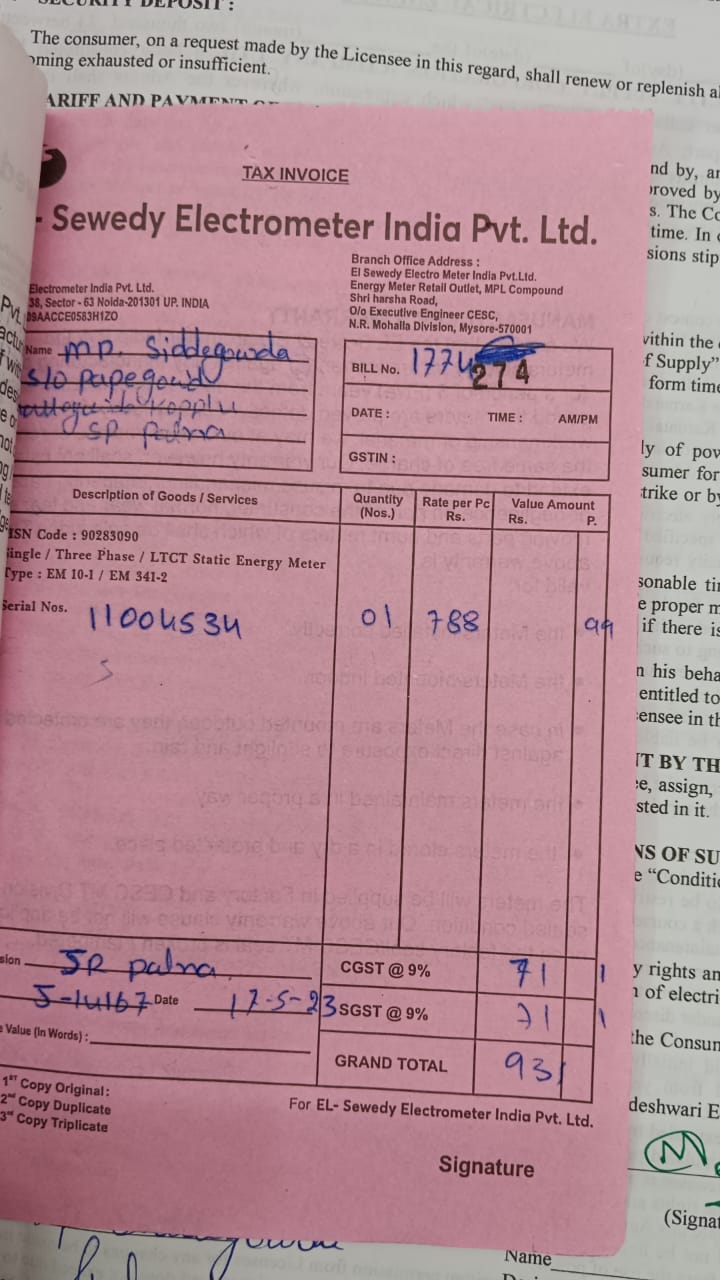 SECURITY DEPOSIT :
The consumer, on a request made by the Licensee in this regard, shall renew or replenish
oming exhausted or insufficient.
ARIFF AND PAYMENT
TAX INVOICE
- Sewedy Electrometer India Pvt. Ltd.
Electrometer India Pvt. Ltd.
38, Sector - 63 Noida-201301 UP. INDIA
09AACCE0583H1ZO
Branch Office Address :
El Sewedy Electro Meter India Pvt.Ltd.
Energy Meter Retail Outlet, MPL Compound
Shri harsha Road,
O/o Executive Engineer CESC,
N.R. Mohalla Division, Mysore-570001
Name MP. Siddegowda
S/o papegowd
kopplu
SP palna
BILL No. 1774 274
DATE : TIME : AM/PM
GSTIN :
Description of Goods / Services Quantity (Nos.) Rate per Pc Rs. Value Amount Rs. P.
ISN Code : 90283090
ingle / Three Phase / LTCT Static Energy Meter
Type : EM 10-1 / EM 341-2
Serial Nos. 11004534 01 788 99
sion SR palna CGST @ 9% 71 1
J-14167 Date 17-5-23 SGST @ 9% 71 1
Value (In Words) :
GRAND TOTAL 931
1ST Copy Original :
2nd Copy Duplicate
3rd Copy Triplicate
For EL- Sewedy Electrometer India Pvt. Ltd.
Signature
nd by, an
roved by
s. The Co
time. In
sions stip
within the
f Supply”
form time
ly of pow
sumer for
trike or by
sonable tin
e proper m
if there is
n his beha
entitled to
ensee in th
IT BY TH
e, assign,
sted in it.
NS OF SU
e “Conditi
y rights an
of electri
the Consun
deshwari E
(Signat
Name